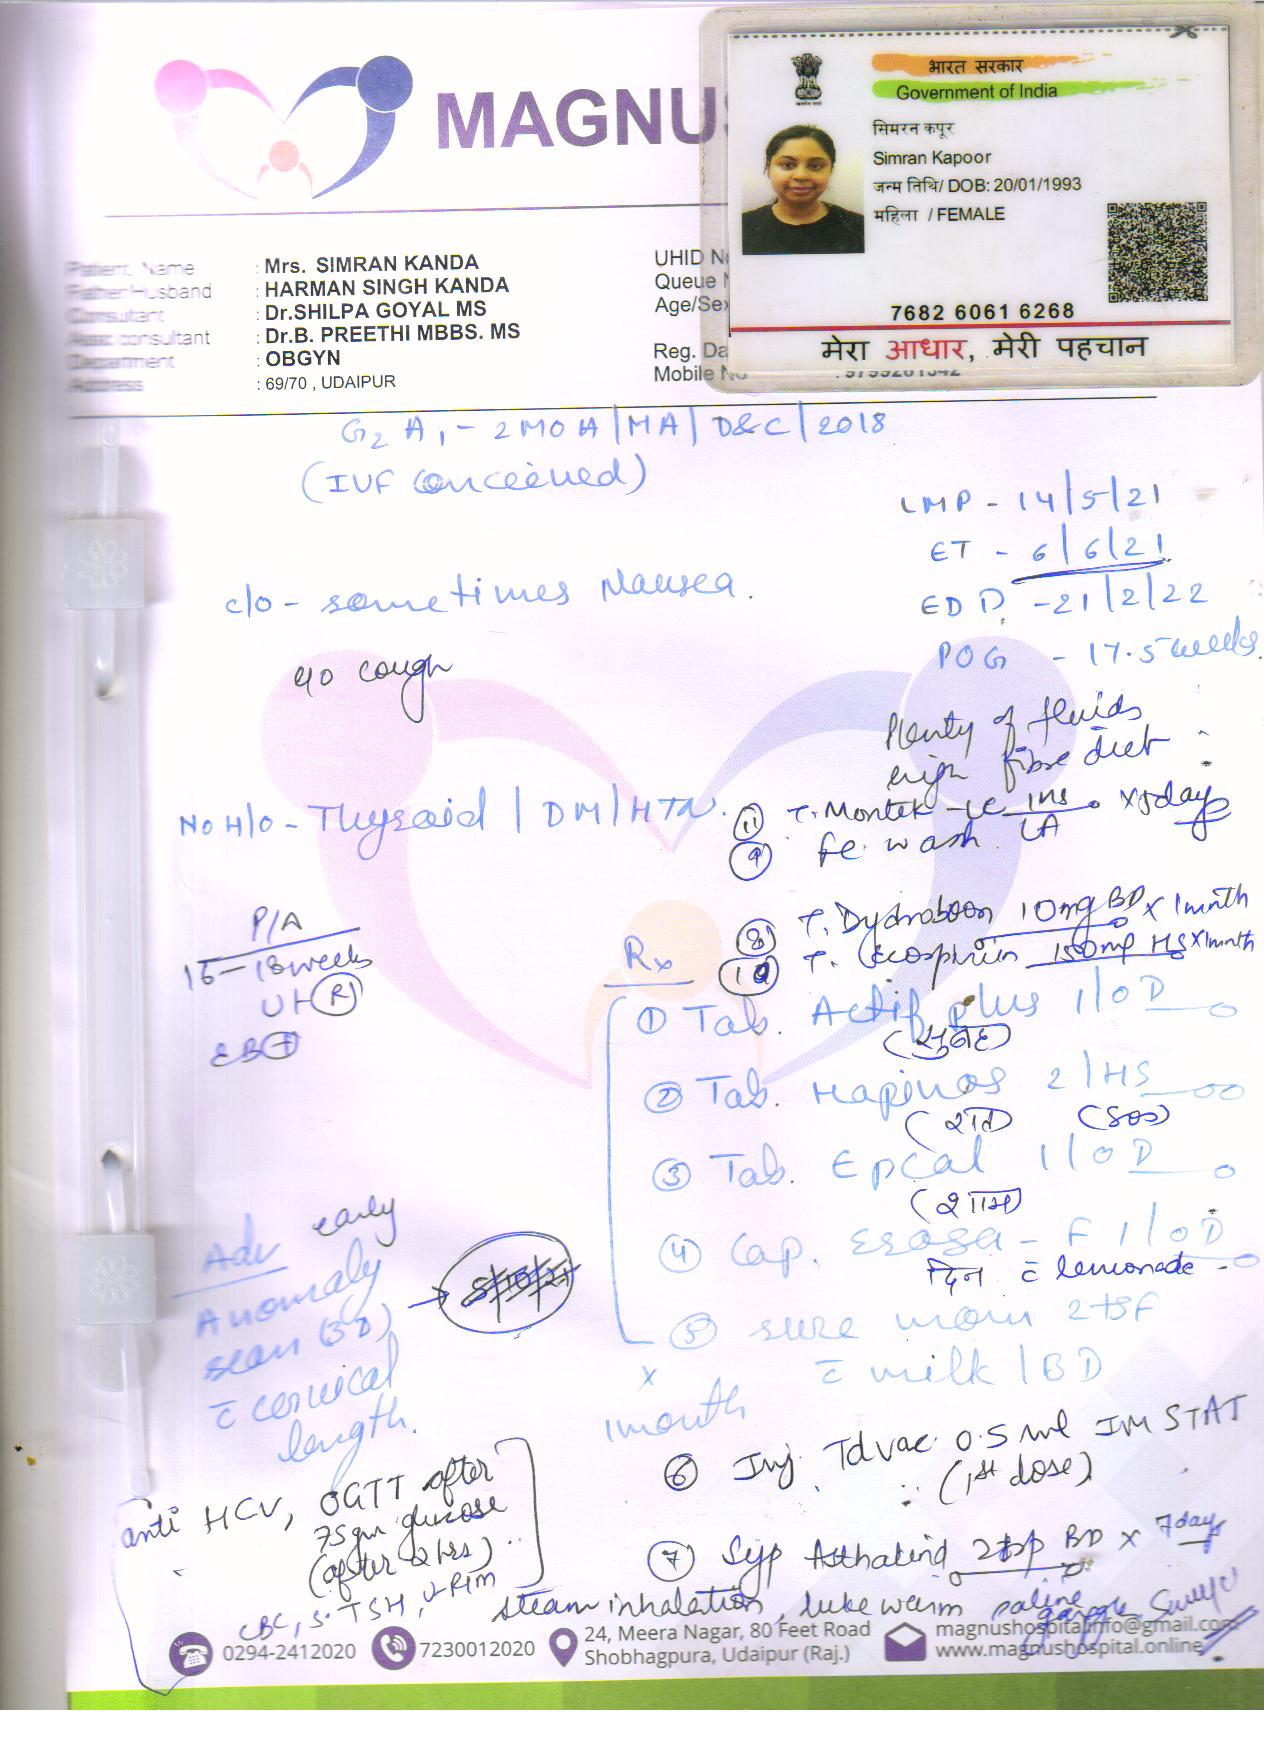 MAGNUS
भारत सरकार
Government of India
सिमरन कपूर
Simran Kapoor
जन्म तिथि/ DOB: 20/01/1993
महिला / FEMALE
7682 6061 6268
मेरा आधार, मेरी पहचान
Patient Name : Mrs. SIMRAN KANDA
Father/Husband : HARMAN SINGH KANDA
Consultant : Dr.SHILPA GOYAL MS
Asso consultant : Dr.B. PREETHI MBBS. MS
Department : OBGYN
Address : 69/70 , UDAIPUR
UHID N
Queue
Age/Sex
Reg. Da
Mobile No
G2 A1 - 2 MOA | MA | D&C | 2018
(IVF conceived)
LMP - 14/5/21
ET - 6/6/21
EDD - 21/2/22
POG - 17.5 weeks
c/o - sometimes Nausea.
c/o cough
Plenty of fluids
high fibre diet
No H/O - Thyroid / DM / HTN.
11 T. Montek - LC 1 HS x 5 days
9 fe. wash
8 T. Dydroboon 10mg BD x 1 month
10 T. Ecosprin 150mg HS x 1 month
P/A
16-18 weeks
Ut (R)
Rx
1 Tab. Actif plus 1/OD
(सुबह)
2 Tab. Hapinos 2/HS
(रात) (SOS)
3 Tab. Epcal 1/OD
(शाम)
4 Cap. Esosa - F 1/OD
दिन c̄ lemonade
5 sure mom 2 tsf
c̄ milk / BD
x 1 month
Adv early
Anomaly
scan (3D)
c̄ cervical
length.
6 Inj. Tdvac 0.5 ml IM STAT
(1st dose)
anti HCV, OGTT after
75gm glucose
(after 2 hrs)
CBC, S. TSH, U-R/M
7 Syp Asthalind 2tsp BD x 7 days
steam inhalation, luke warm saline
gargle
0294-2412020
7230012020
24, Meera Nagar, 80 Feet Road
Shobhagpura, Udaipur (Raj.)
magnushospitalinfo@gmail.com
www.magnushospital.online